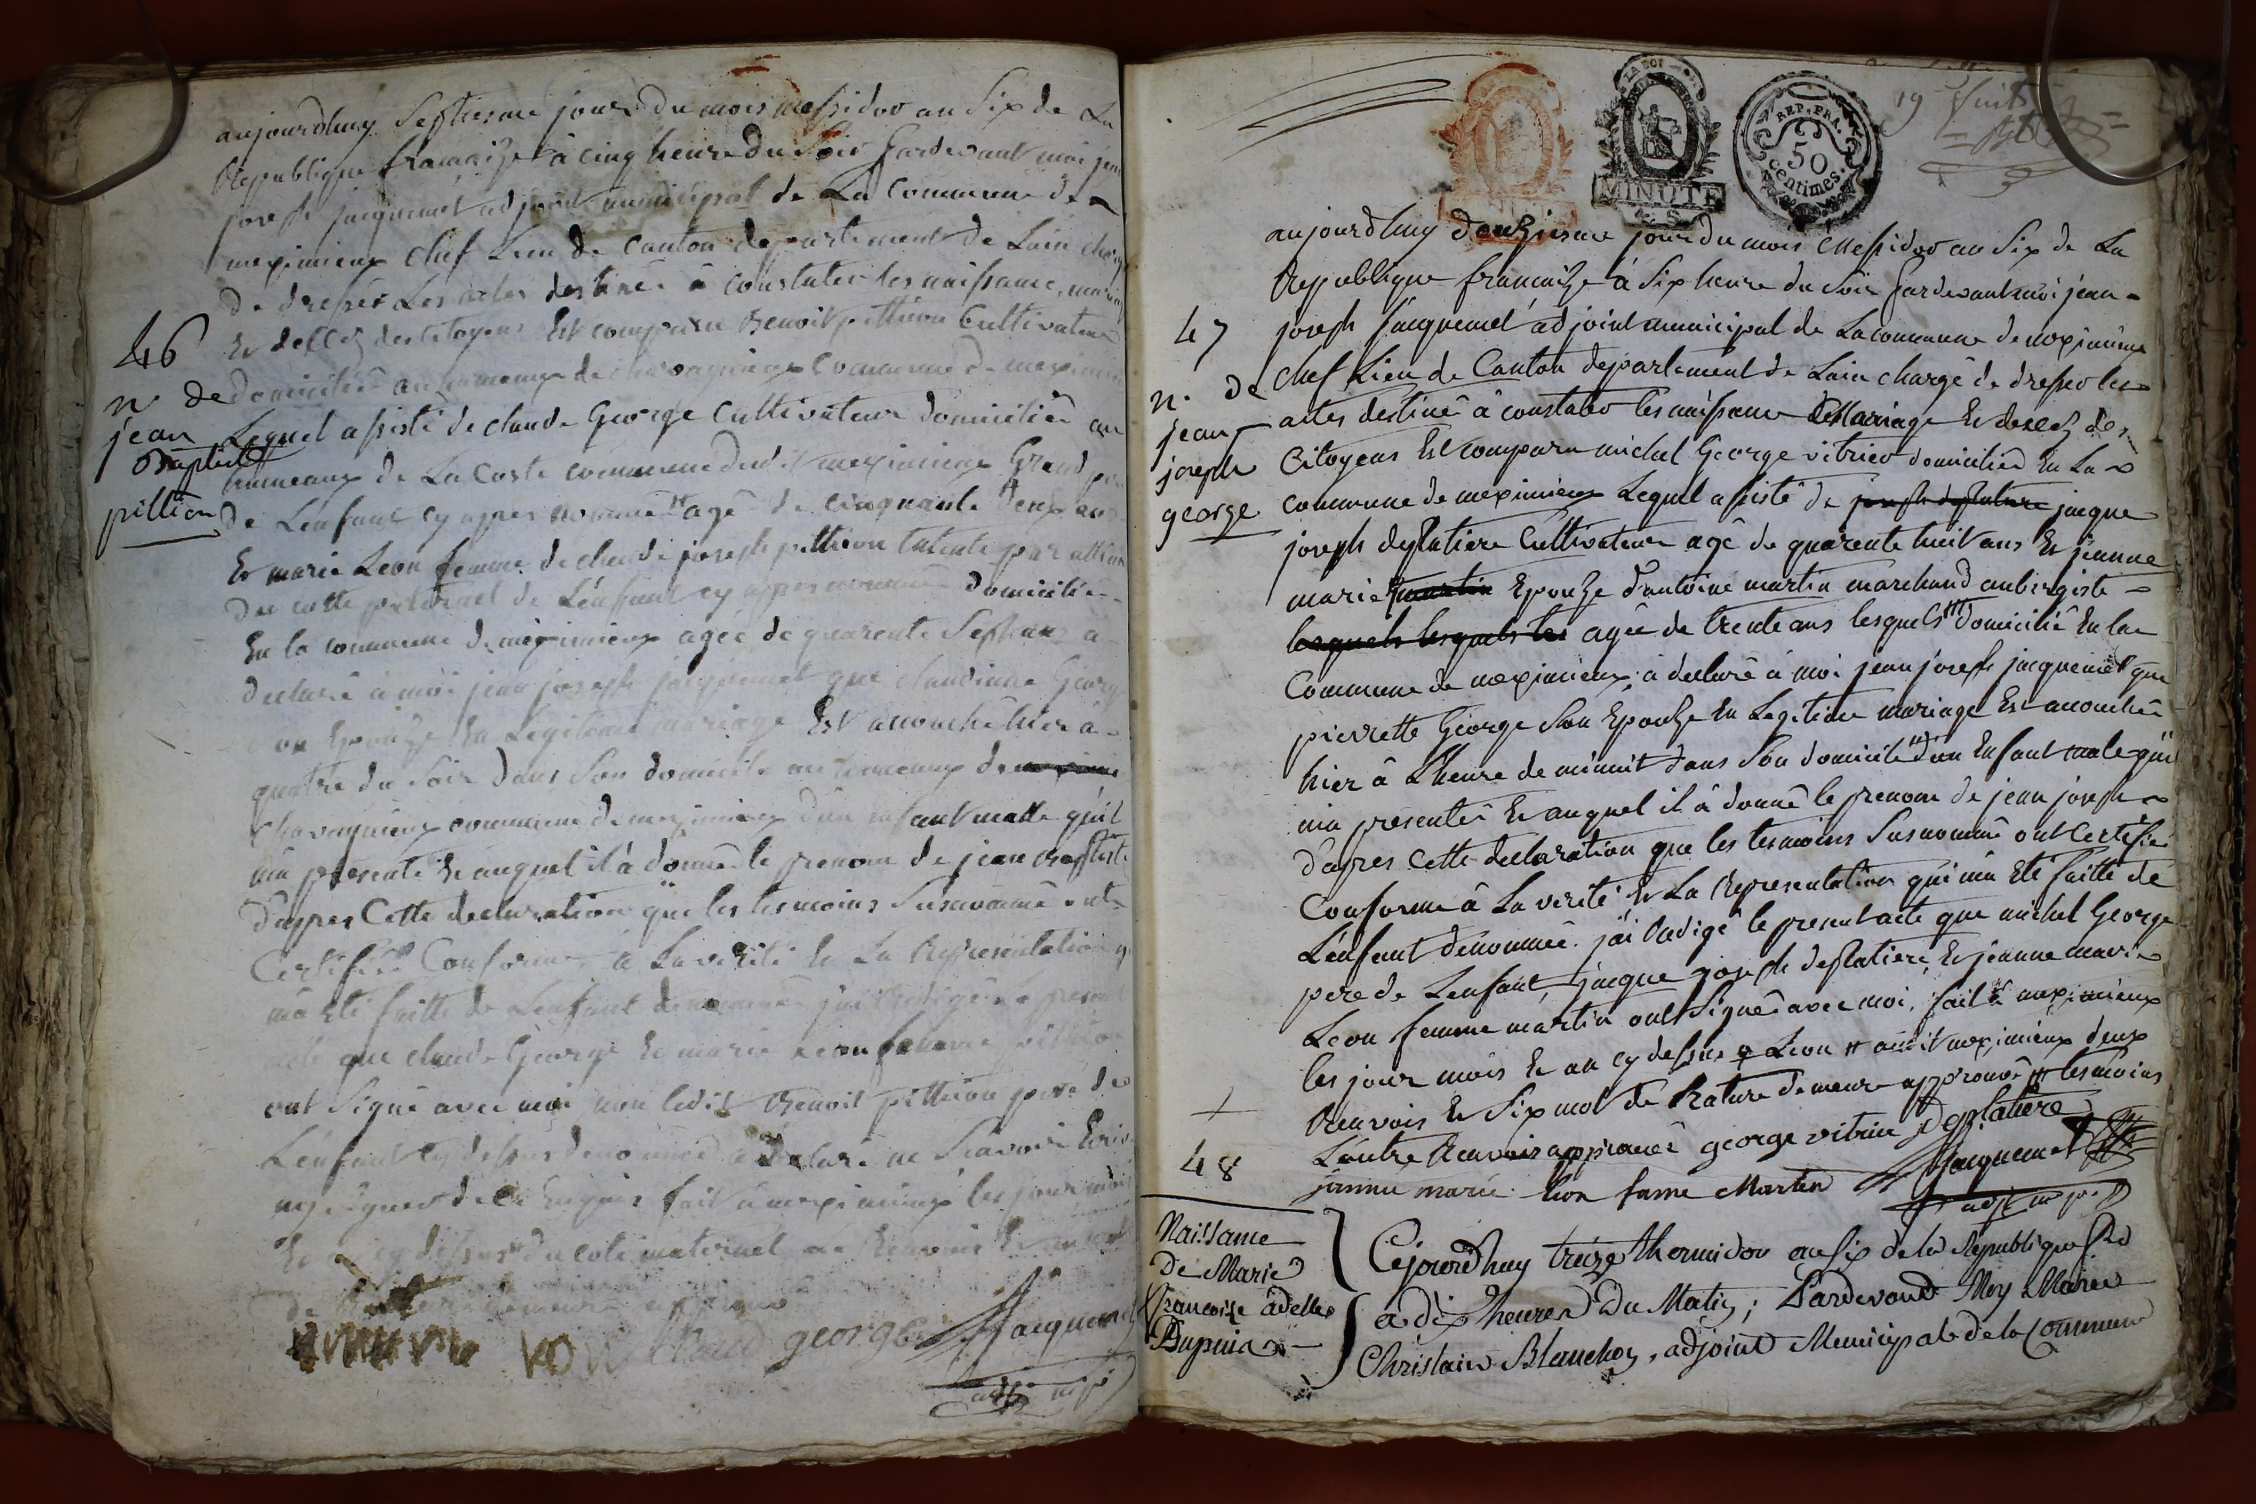 aujourdhuy Septiesme jour Du mois messidor an Six de La
Republique francaize à cinq heure du Soir pardevant moi jean
joseph jacquemet adjoint municipal de La Commune de
meximieux chef Lieu de Canton departement de Lain chargé
de dresser Les actes destinée à Constater les naissance, mariage
Et decez des citoyens Est comparu Benoit pittion Cultivateur
46
n. de
jean
Baptiste
pittion
domicilié au hameaux de chavagnieux Commune de meximieux
Lequel assisté de claude George Cultivateur domicilié au
hameaux de La Coste commune dudit meximieux Grand pere
de Lenfant cy apres nommé agé de cinquante deux ans
Et marie Leon femme de claude joseph pittion
du cotté paternel de Lenfant cy apres nommé domiciliée
En la commune de meximieux agée de quarente Sept ans à
declaré à moi jean joseph jacquemet que claudinne George
Son Epouze En Legitime mariage Est accouchée hier à
quatre du Soir dans Son domicile au hameaux de
chavagnieux commune de meximieux d'un enfant malle qu'il
ma presenté Et auquel il à donné le prenom de jean Baptiste
d'apres Cette declaration que les tesmoins Susnommé ont
Certifié Conforme à La verité Et La Representation qui
ma Eté faitte de Lenfant denommé j'ai Redigé Le present
acte que claude George Et marie Leon femme pittion
ont Signé avec moi non ledit Benoit pittion pere de
Lenfant cy dessus denommé à declaré ne Scavoir Ecrire
ny Signer de Ce Enquis fait à meximieux les jour mois
Et an cy dessus du coté maternel Renvois
de demeure approuvé
george Jacquemet
adjt mpl
19 huit
LA LOI
MINUTE
REP. FRA.
50
centimes.
aujourdhuy douziesme jour du mois Messidor an Six de La
Republique francaize à Six heure du Soir pardevant moi jean
47
n. de
jean
joseph
george
joseph Jacquemet adjoint municipal de La commune de meximieux
chef Lieu de Canton departement de Lain chargé de dresser les
actes destiné à constater les naissance Mariage Et decez des
Citoyens Est comparu michel George vitrier domicilié En La
commune de meximieux Lequel assisté de joseph deplatiere jacque
joseph deplatiere Cultivateur agé de quarente huit ans Et jeanne
marie martin Epouze d'antoine martin marchand aubergiste
lesquels lesquels les agée de trente ans lesquels domicilié En la
Commune de meximieux à declaré à moi jean joseph jacquemet que
pierrette George Son Epouze En Legitime mariage Est accouchée
hier à L'heure de minuit dans Son domicile d'un Enfant male qui
ma presenté Et auquel il à donné le prenom de jean joseph
d'apres Cette declaration que les tesmoins Susnommé ont Certifié
Conforme à La verité Et La Representation qui ma Eté faitte de
Lenfant denommé. j'ai Redigé le present acte que michel George
pere de Lenfant, jacque joseph deplatiere, Et jeanne marie
Leon femme martin ont Signé avec moi, fait à meximieux
les jour mois Et an cy dessus Leon audit meximieux deux
Renvois Et Six mot de Rature demeure approuvé tesmoins
L'autre Renvois approuvé george vitrier Deplatiere
jeanne marie lion fame Martin Jacquemet
adjt mpl
48
Naissance
De Marie
francoise adelle
Dupuis
Cejourdhuy treize thermidor an Six de la Republique
a dix heures Du Matin; Pardevant Moy Marie
Christain Blanchon, adjoint Municipal de la Commune